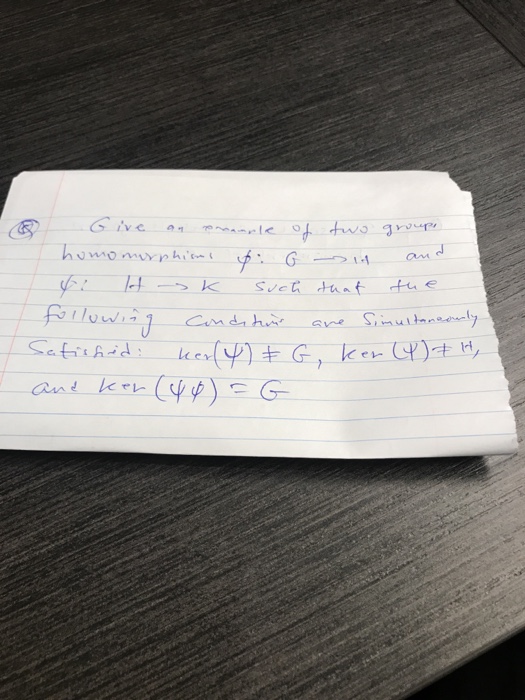 Give an example of two groups
homomorphisms φ: G → H and
ψ: H → K such that the
following conditions are simultaneously
Satisfied: ker(ψ) ≠ G, ker(ψ) ≠ H,
and ker(ψφ) = G